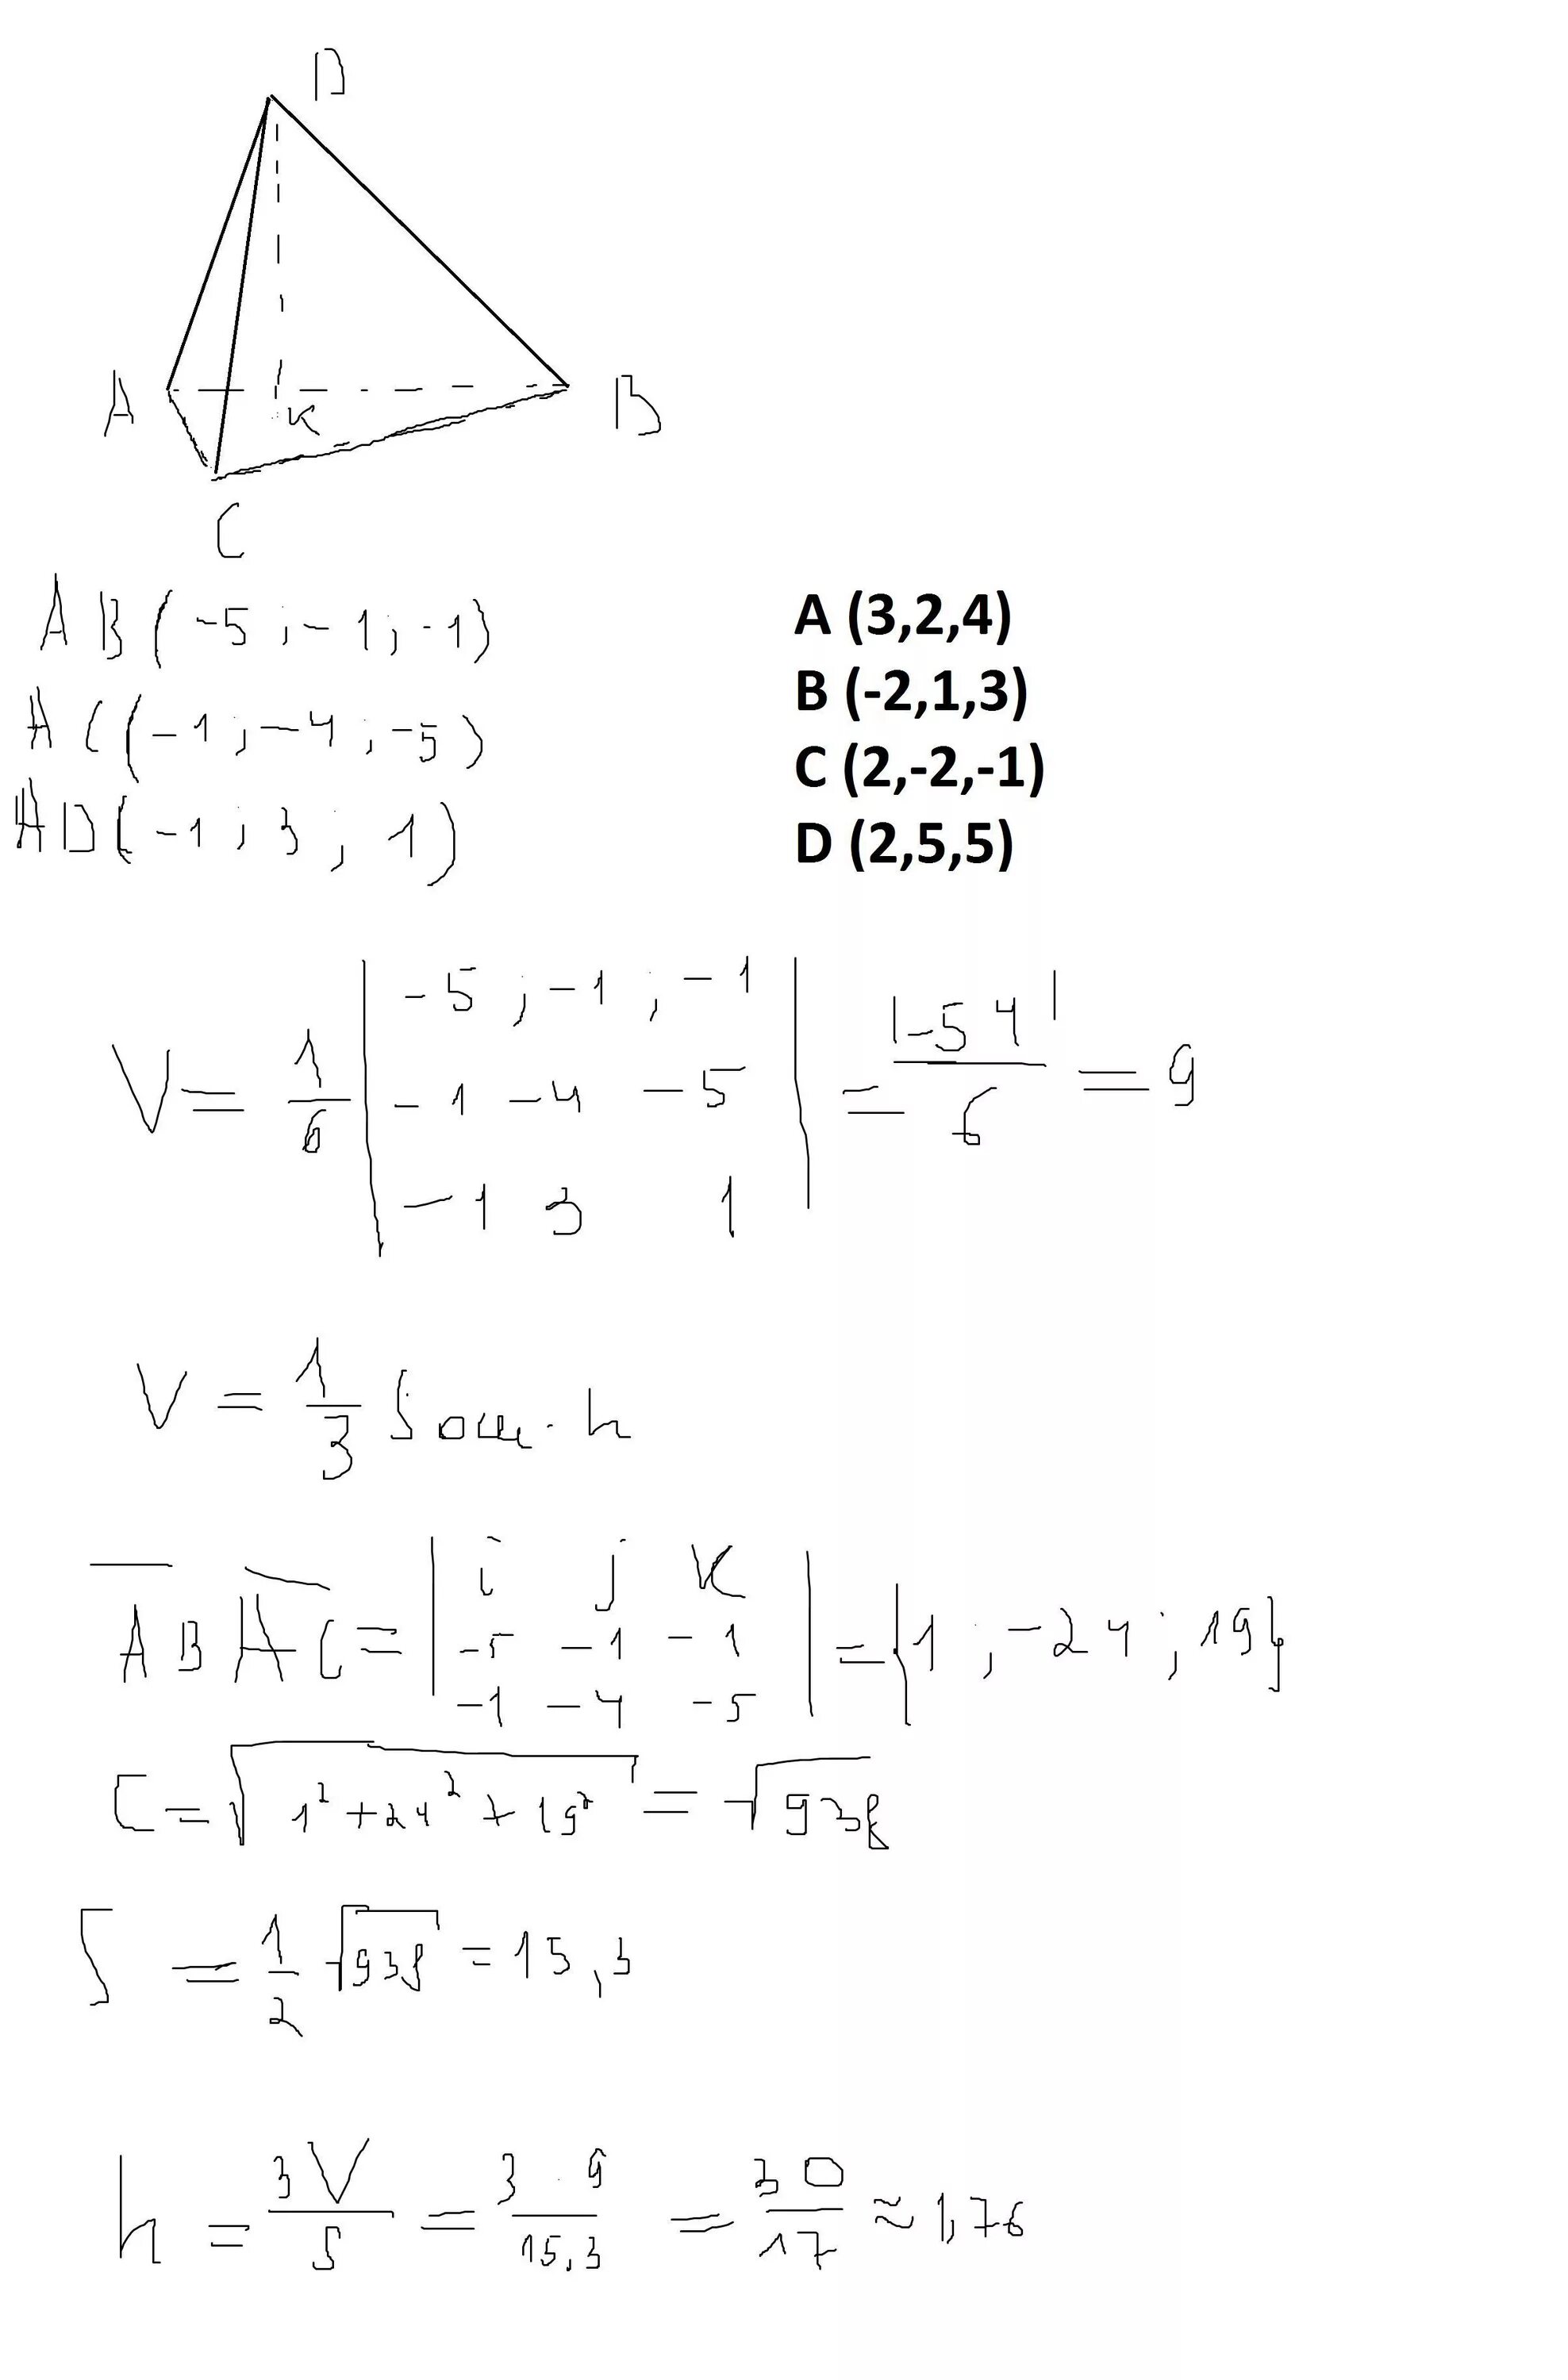 D
A
K
B
C
AB(-5;-1;-1)
AC(-1;-4;-5)
AD(-1;3;1)
A (3,2,4)
B (-2,1,3)
C (2,-2,-1)
D (2,5,5)
V = 1/6 | -5 ; -1 ; -1
-1 -4 -5
-1 3 1 | = |-54|/6 = 9
V = 1/3 Sосн · h
AB AC = | i j k
-5 -1 -1
-1 -4 -5 | = {1 ; -24 ; 19}
C = √1²+24²+19² = √938
S = 1/2 √938 = 15,3
h = 3V/S = 3·9/15,3 = 30/17 ≈ 1,76